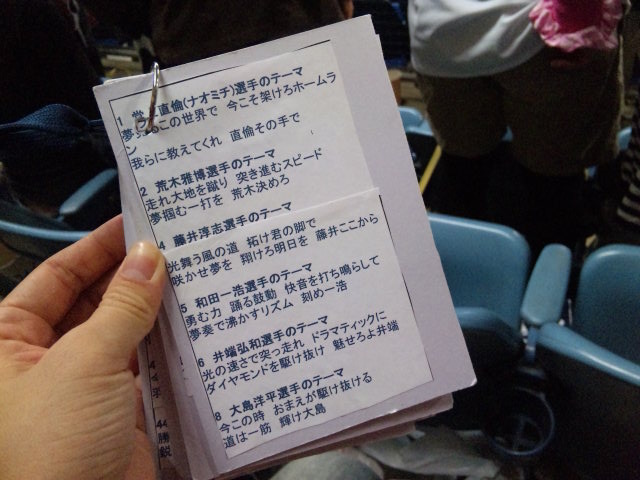 1 直倫(ナオミチ)選手のテーマ
この世界で 今こそ架けろホームラ
ン
我らに教えてくれ 直倫その手で
2 荒木雅博選手のテーマ
走れ大地を蹴り 突き進むスピード
夢掴む一打を 荒木決めろ
4 藤井淳志選手のテーマ
光舞う風の道 拓け君の脚で
咲かせ夢を 翔けろ明日を 藤井ここから
5 和田一浩選手のテーマ
勇む力 踊る鼓動 快音を打ち鳴らして
夢奏で沸かすリズム 刻め一浩
6 井端弘和選手のテーマ
光の速さで突っ走れ ドラマティックに
ダイヤモンドを駆け抜け 魅せろよ井端
8 大島洋平選手のテーマ
今この時 おまえが駆け抜ける
道は一筋 輝け大島
44
勝
鋭